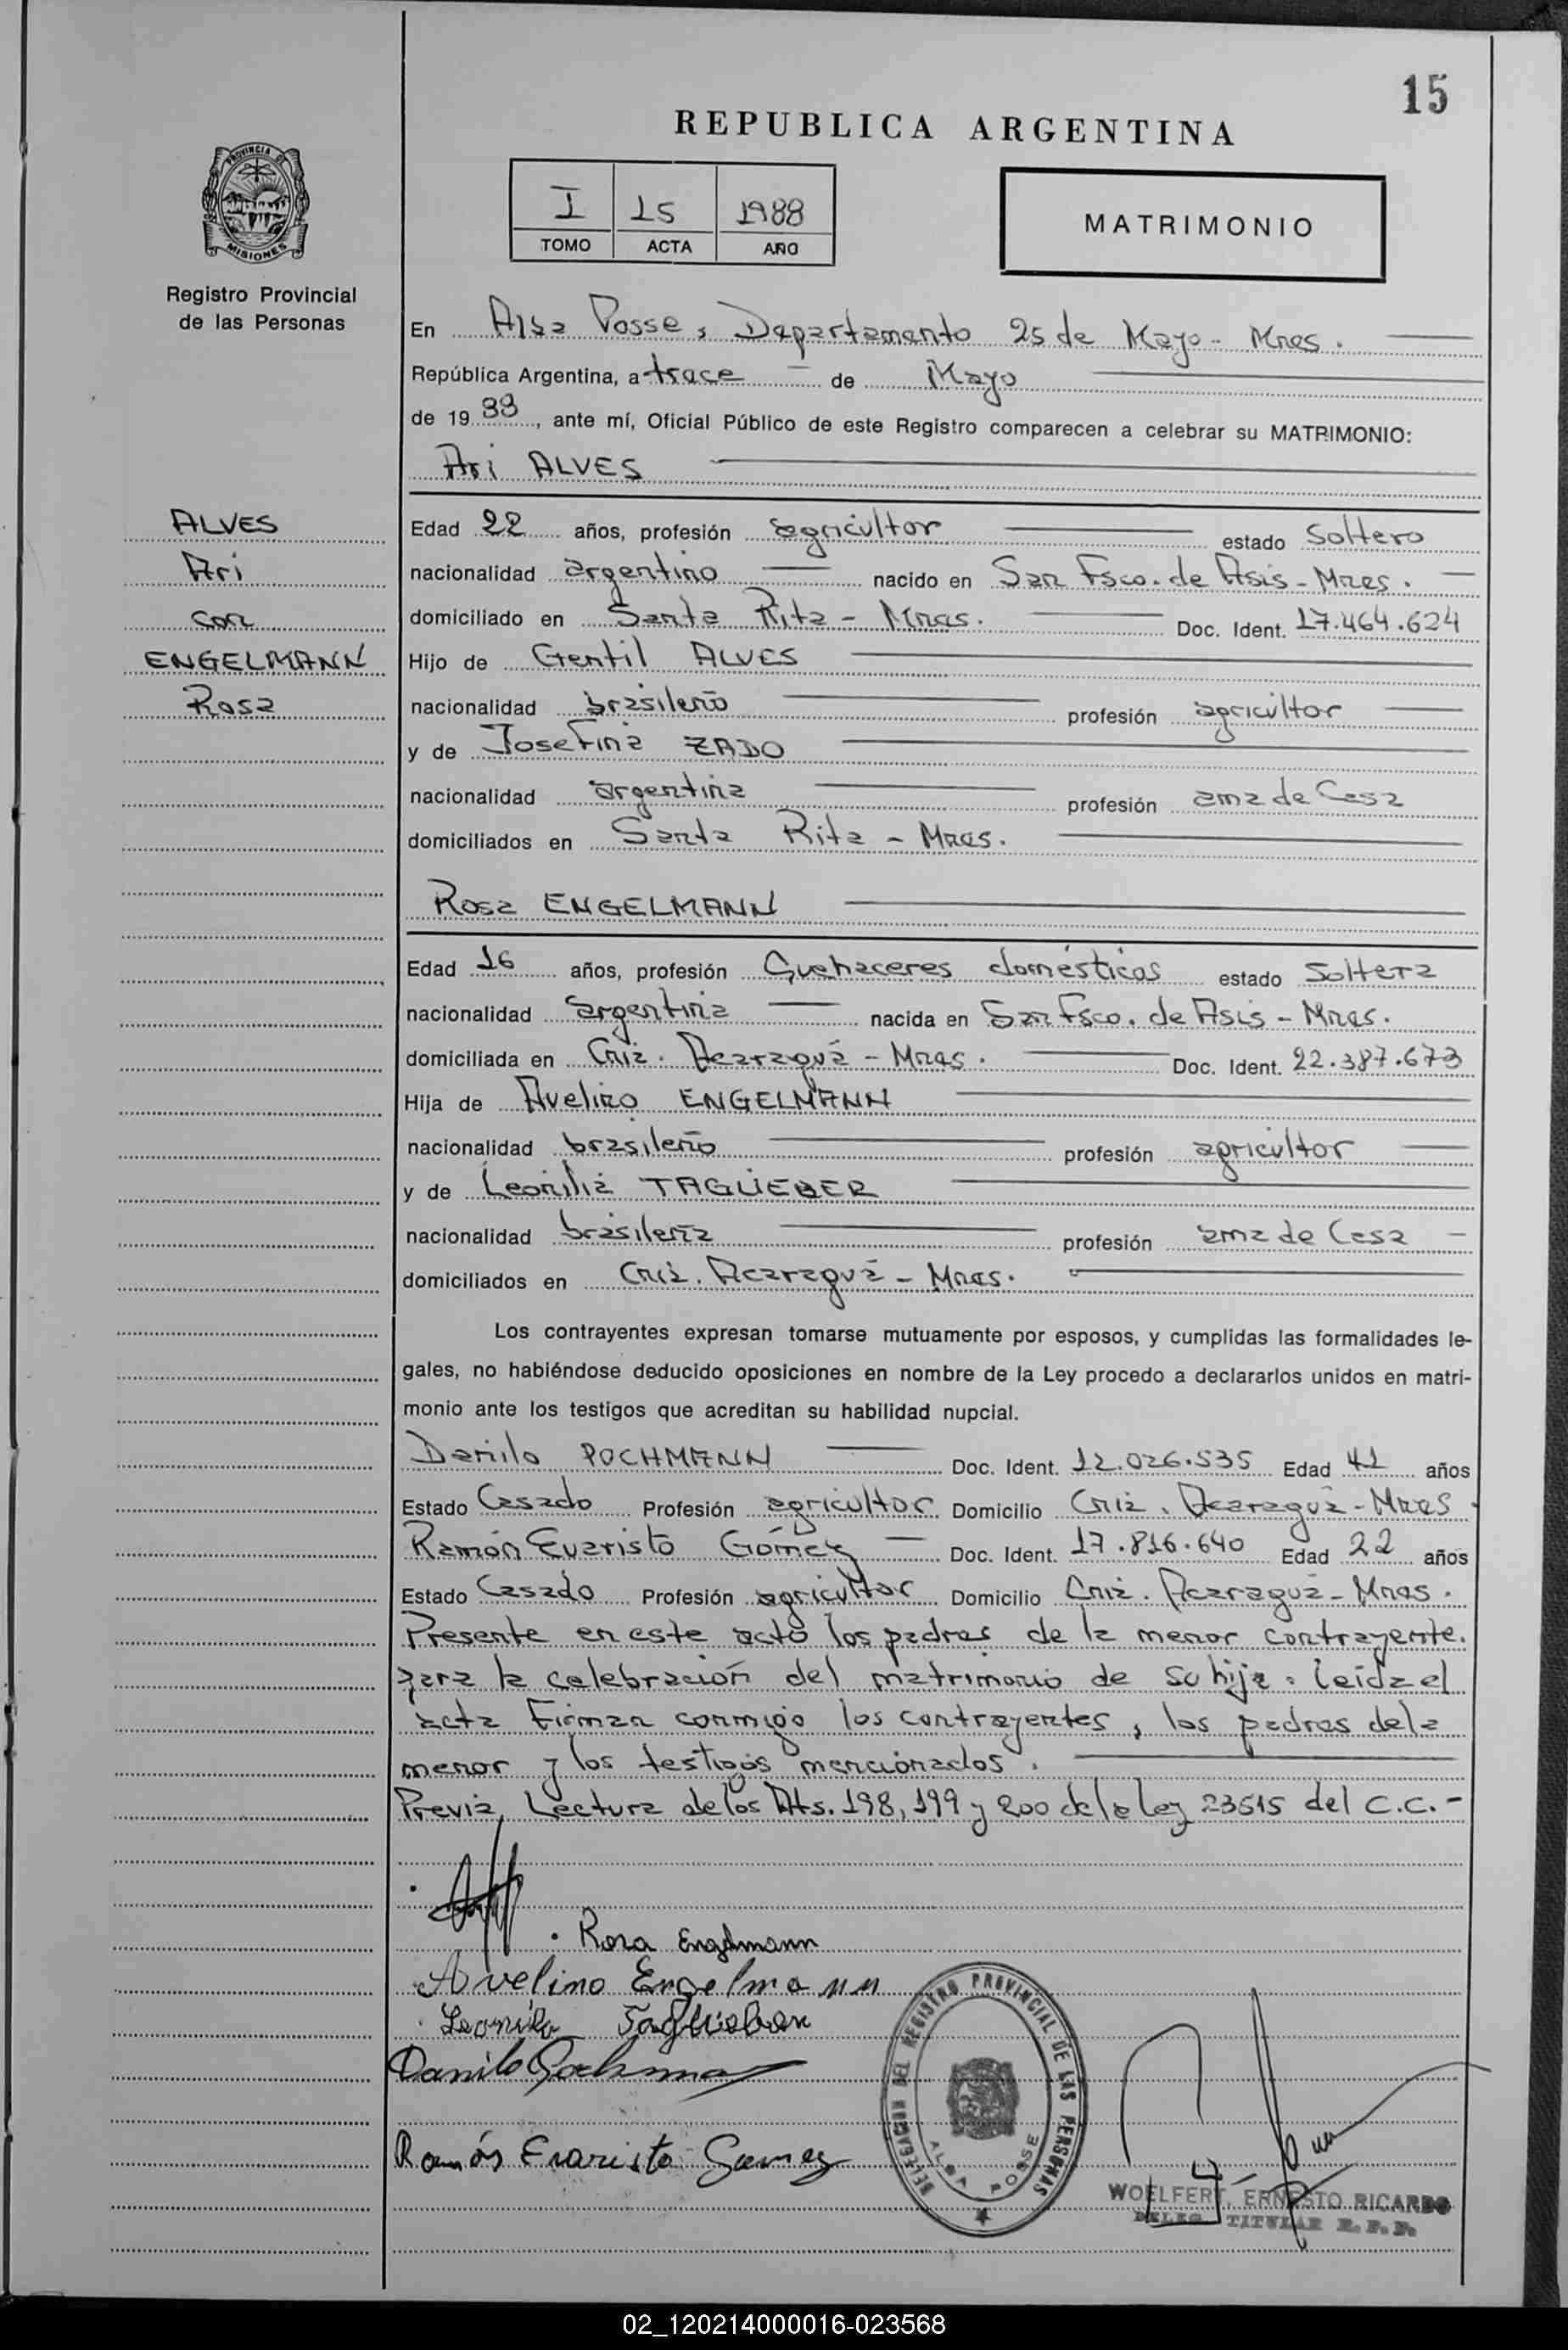 15
REPUBLICA ARGENTINA
PROVINCIA DE
MISIONES
I 15 1988
TOMO ACTA AÑO
MATRIMONIO
Registro Provincial
de las Personas
En Alba Posse, Departamento 25 de Mayo - Mnes.
República Argentina, a trece de Mayo
de 1988, ante mí, Oficial Público de este Registro comparecen a celebrar su MATRIMONIO:
Ari ALVES
ALVES
Ari
con
ENGELMANN
Rosa
Edad 22 años, profesión agricultor estado Soltero
nacionalidad argentino nacido en San Fsco. de Asis - Mnes.
domiciliado en Santa Rita - Mnes. Doc. Ident. 17.464.624
Hijo de Gentil ALVES
nacionalidad brasileño profesión agricultor
y de Josefina ZADO
nacionalidad argentina profesión ama de Casa
domiciliados en Santa Rita - Mnes.
Rosa ENGELMANN
Edad 16 años, profesión Quehaceres domésticos estado Soltera
nacionalidad argentina nacida en San Fsco. de Asis - Mnes.
domiciliada en Cnia. Acaraguá - Mnes. Doc. Ident. 22.387.673
Hija de Avelino ENGELMANN
nacionalidad brasileño profesión agricultor
y de Leonilia TAGLIEBER
nacionalidad brasileña profesión ama de Casa
domiciliados en Cnia. Acaraguá - Mnes.
Los contrayentes expresan tomarse mutuamente por esposos, y cumplidas las formalidades le-
gales, no habiéndose deducido oposiciones en nombre de la Ley procedo a declararlos unidos en matri-
monio ante los testigos que acreditan su habilidad nupcial.
Danilo POCHMANN Doc. Ident. 12.026.535 Edad 41 años
Estado Casado Profesión agricultor Domicilio Cnia. Acaraguá - Mnes.
Ramón Evaristo Gómez Doc. Ident. 17.816.640 Edad 22 años
Estado Casado Profesión agricultor Domicilio Cnia. Acaraguá - Mnes.
Presente en este acto los padres de la menor contrayente.
para la celebración del matrimonio de su hija. leída el
acta firman conmigo los contrayentes, los padres de la
menor y los testigos mencionados.
Previa, Lectura de los Arts. 198, 199 y 200 de la Ley 23515 del C.C. -
Rosa Engelmann
Avelino Engelmann
Leonila Taglieber
Danilo Pochmann
Ramón Evaristo Gomez
DELEGACION DEL REGISTRO PROVINCIAL DE LAS PERSONAS
ALBA POSSE
WOELFERT, ERNESTO RICARDO
DELEG. TITULAR R. P. P.
02_120214000016-023568